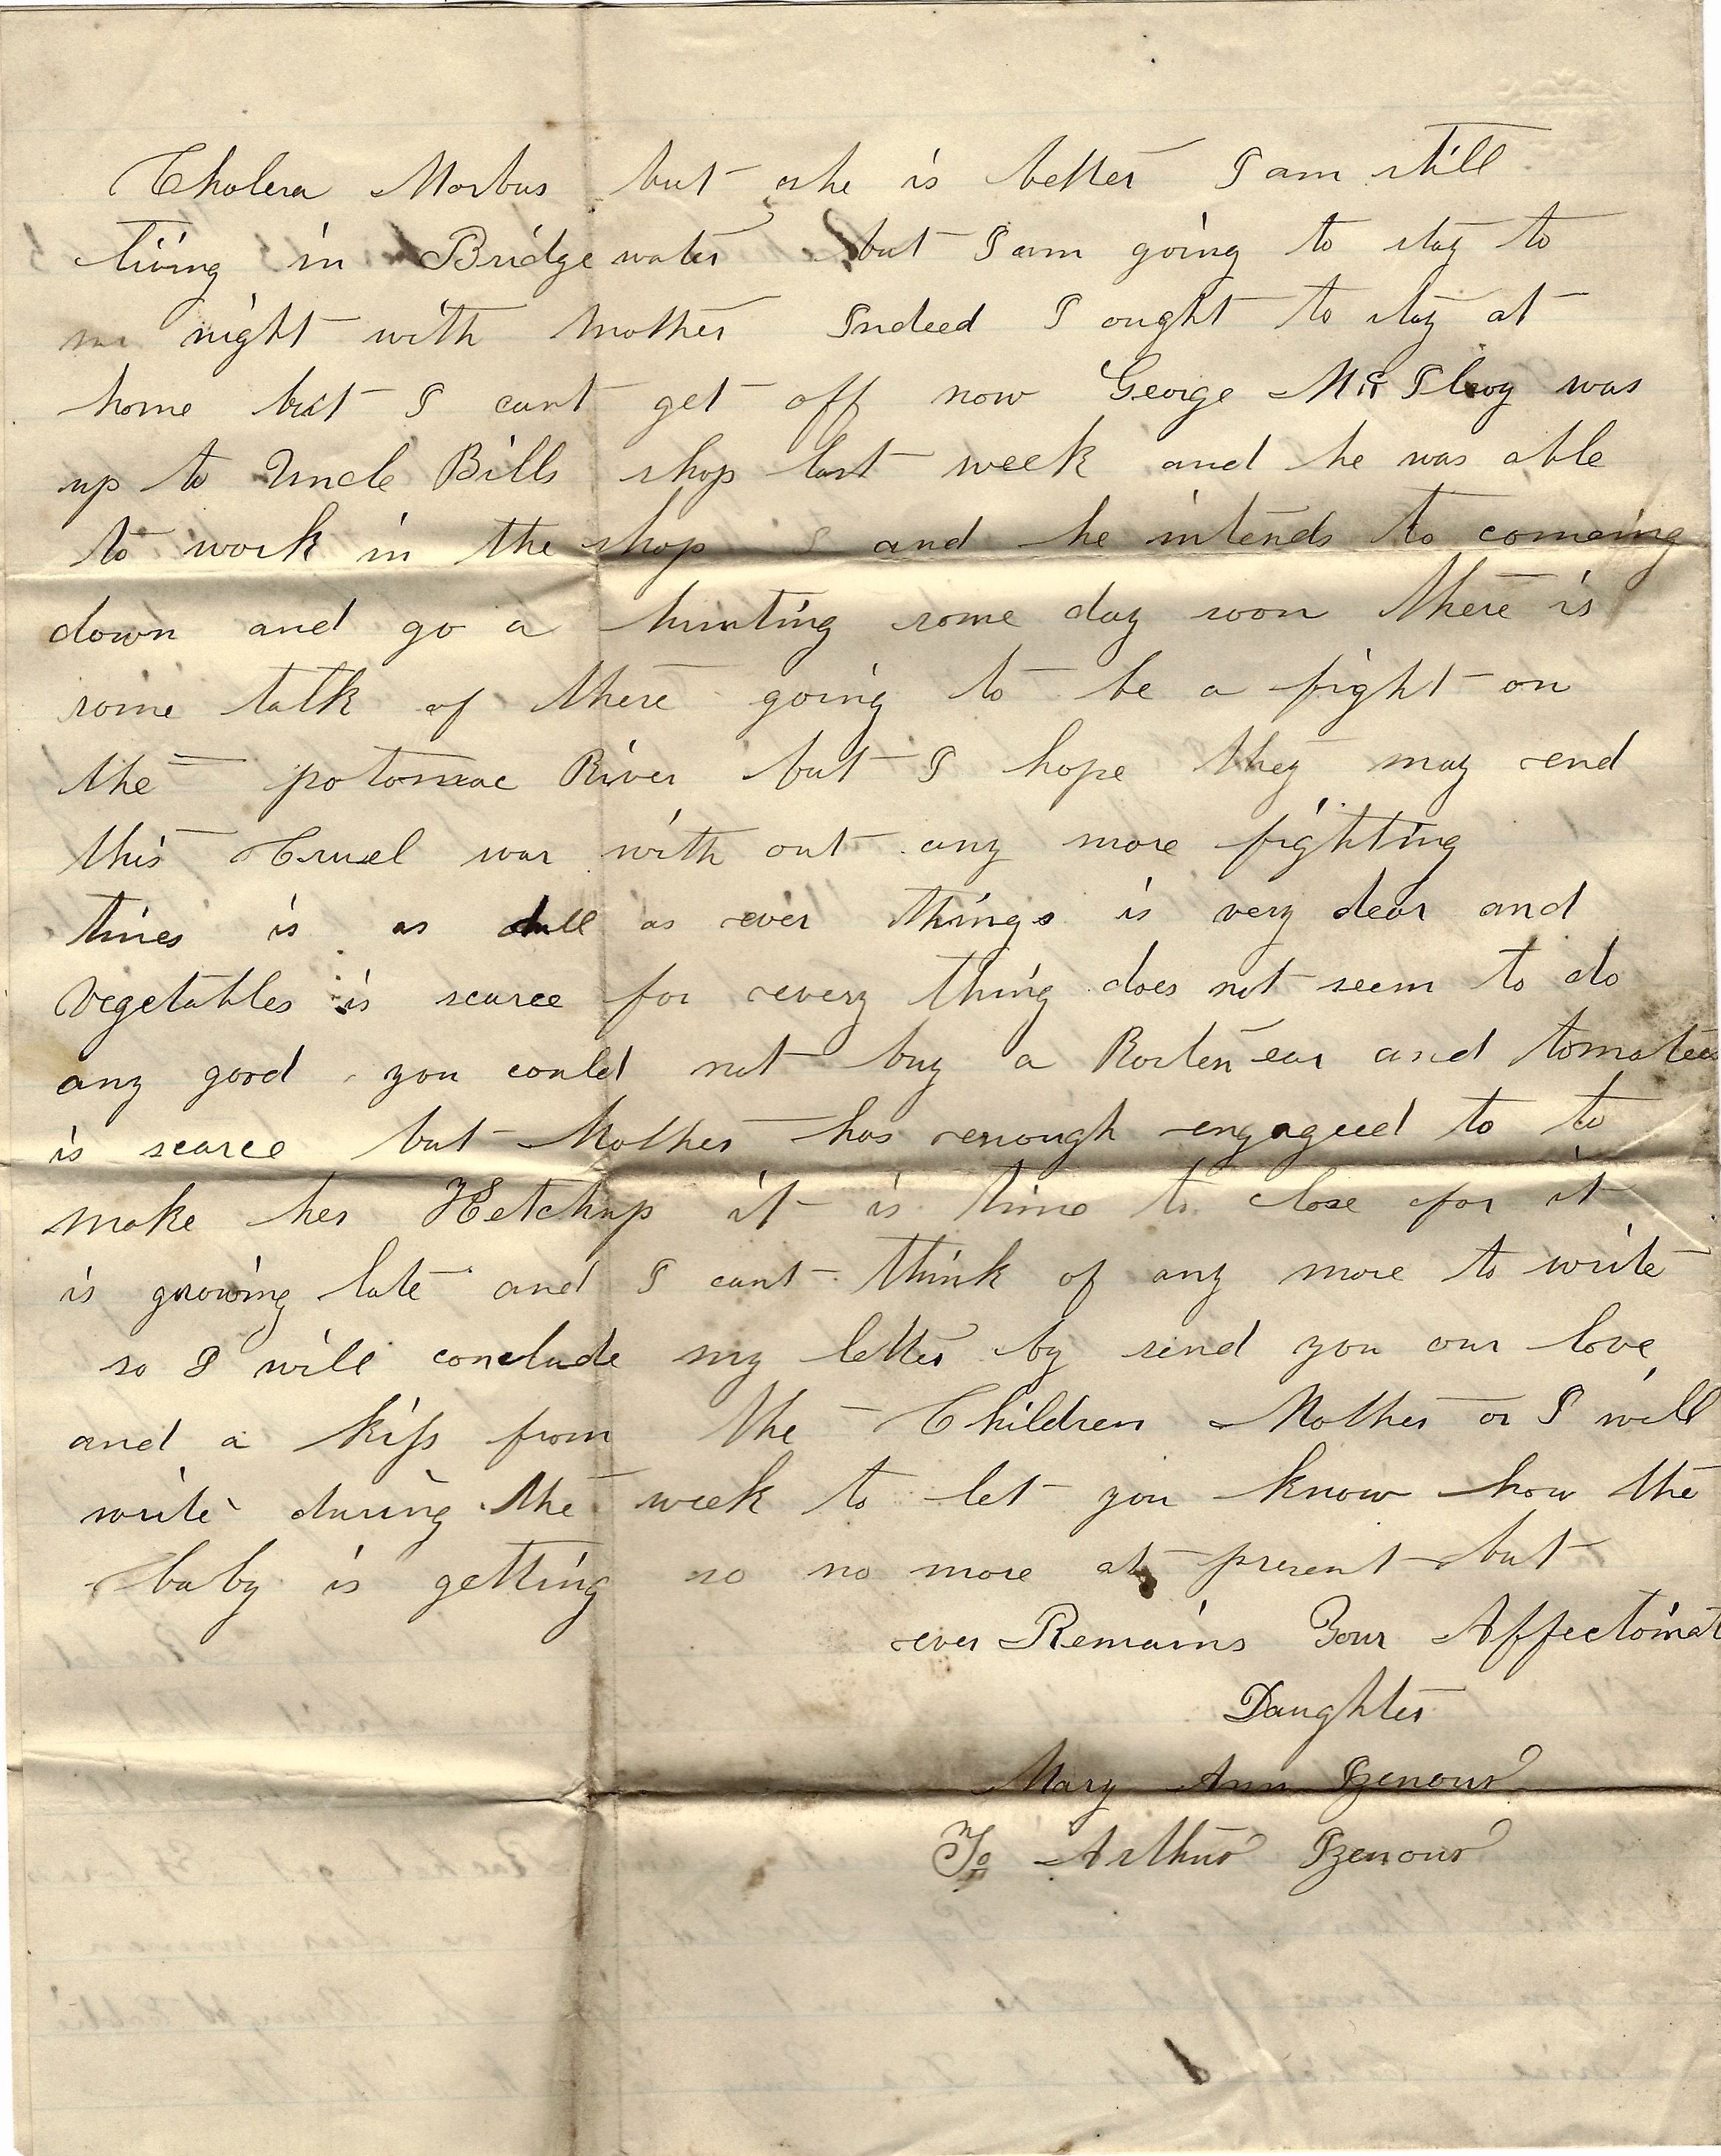 Cholera Morbus but she is better I am still
living in Bridgewater but I am going to stay to
night with Mother Indeed I ought to stay at
home but I cant get off now George was
up to Uncle Bills shop last week and he was able
to work in the shop and he intends to comeing
down and go a hunting some day soon there is
some talk of there going to be a fight on
the potomac River but I hope they may end
this Cruel war with out any more fighting
times is as dull as ever things is very dear and
Vegetables is scarce for every thing does not seem to do
any good you could not buy a Rosten ear and tomatoes
is scarce but Mother has enough engaged to to
make her Ketchup it is time to close for it
is growing late and I cant think of any more to write
so I will conclude my letter by send you our love
and a kiss from the Children Mother or I will
write during the week to let you know how the
baby is getting so no more at present but
ever Remains Your Affectionat
Daughter
Mary Ann Izenour
To Arthur Izenour